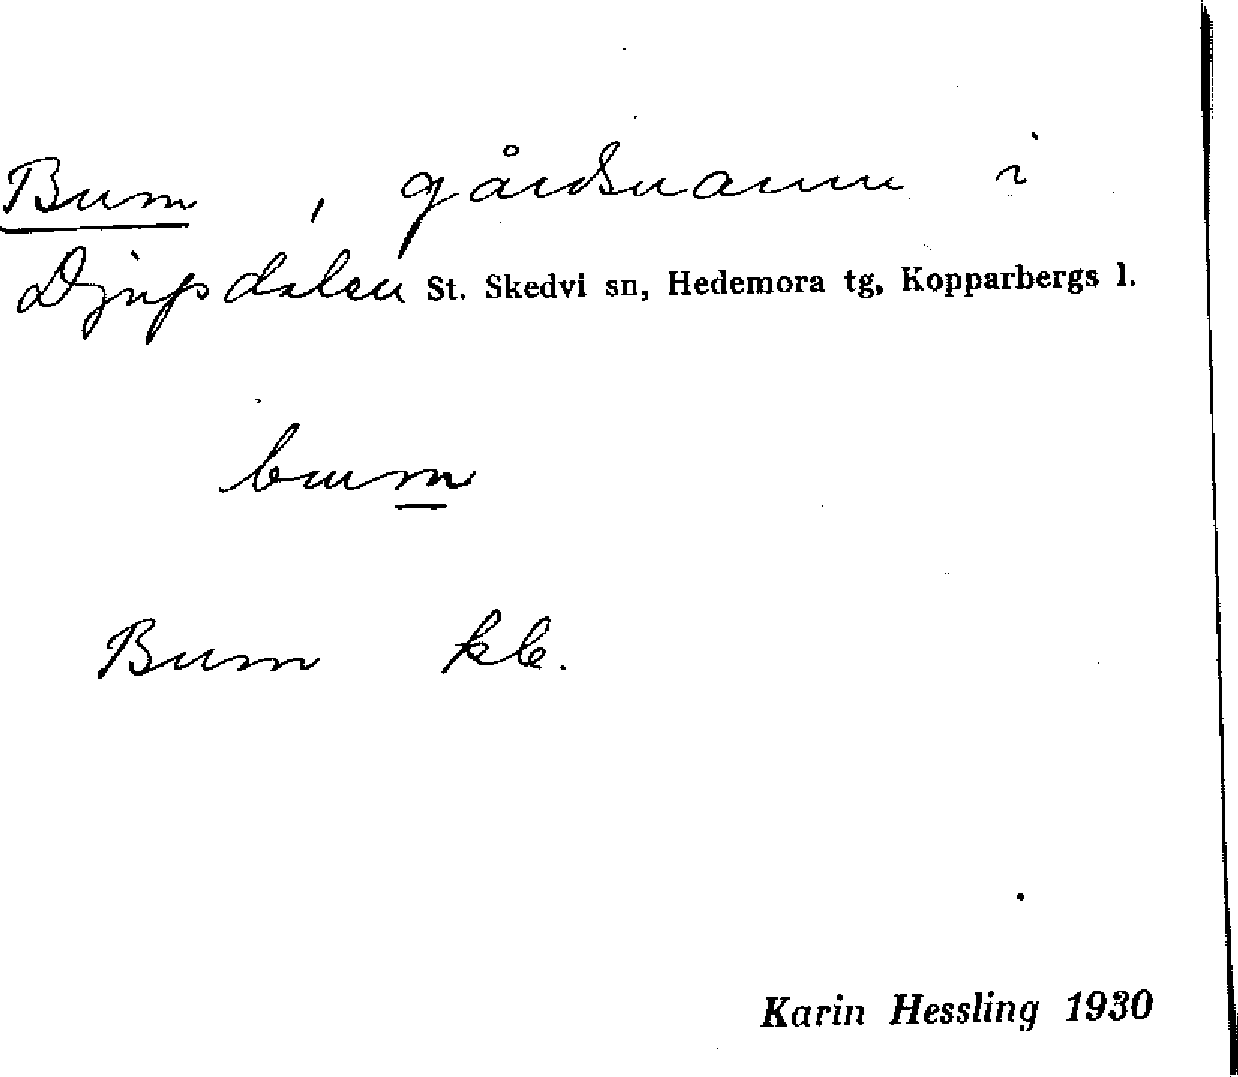 Bum, gårdsnamn i
Djupsdalen St. Skedvi sn, Hedemora tg, Kopparbergs l.
bum
Bum kb.
Karin Hessling 1930